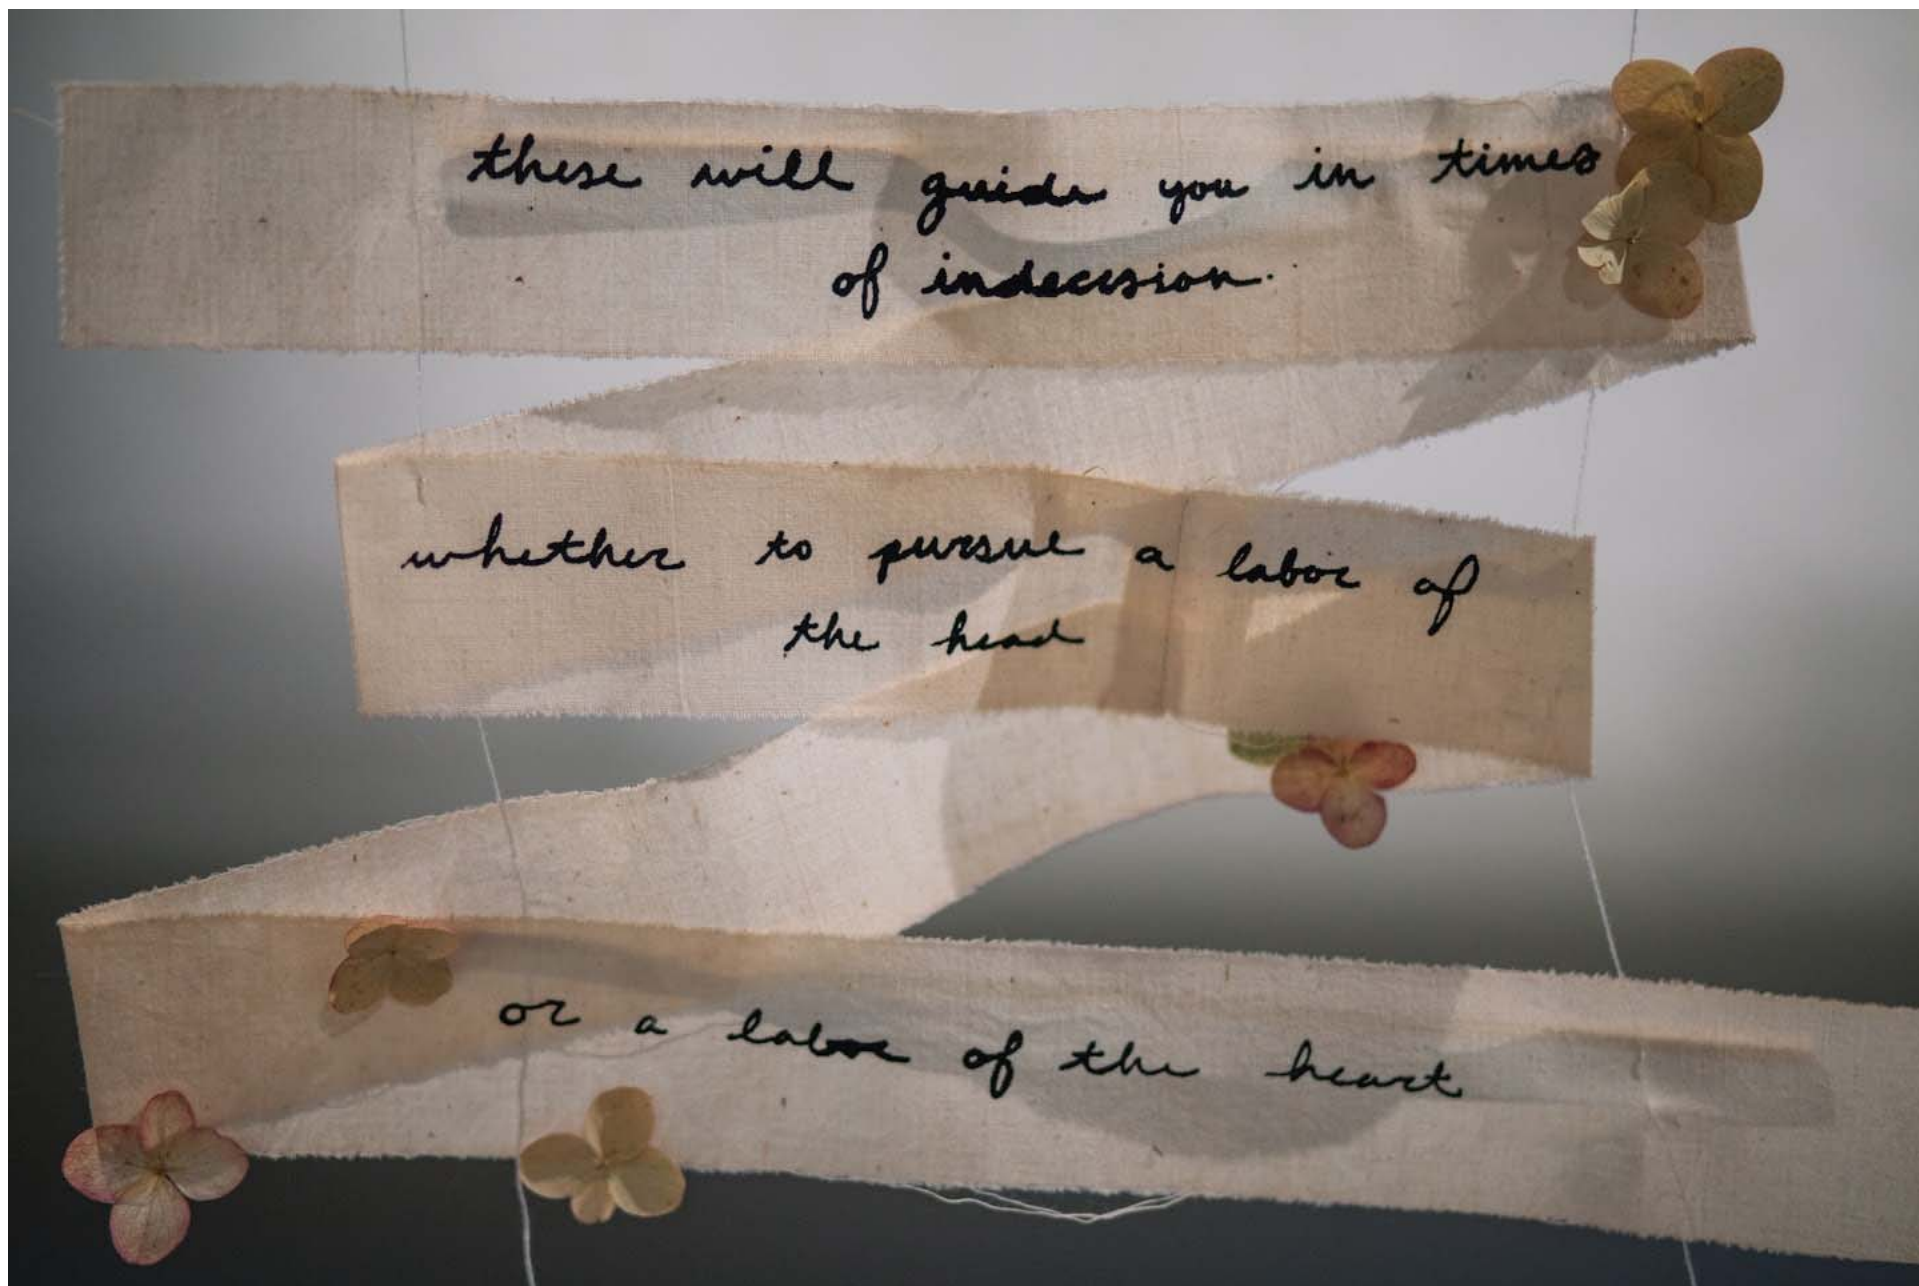 these will guide you in times
of indecision.
whether to pursue a labor of
the head
or a labor of the heart